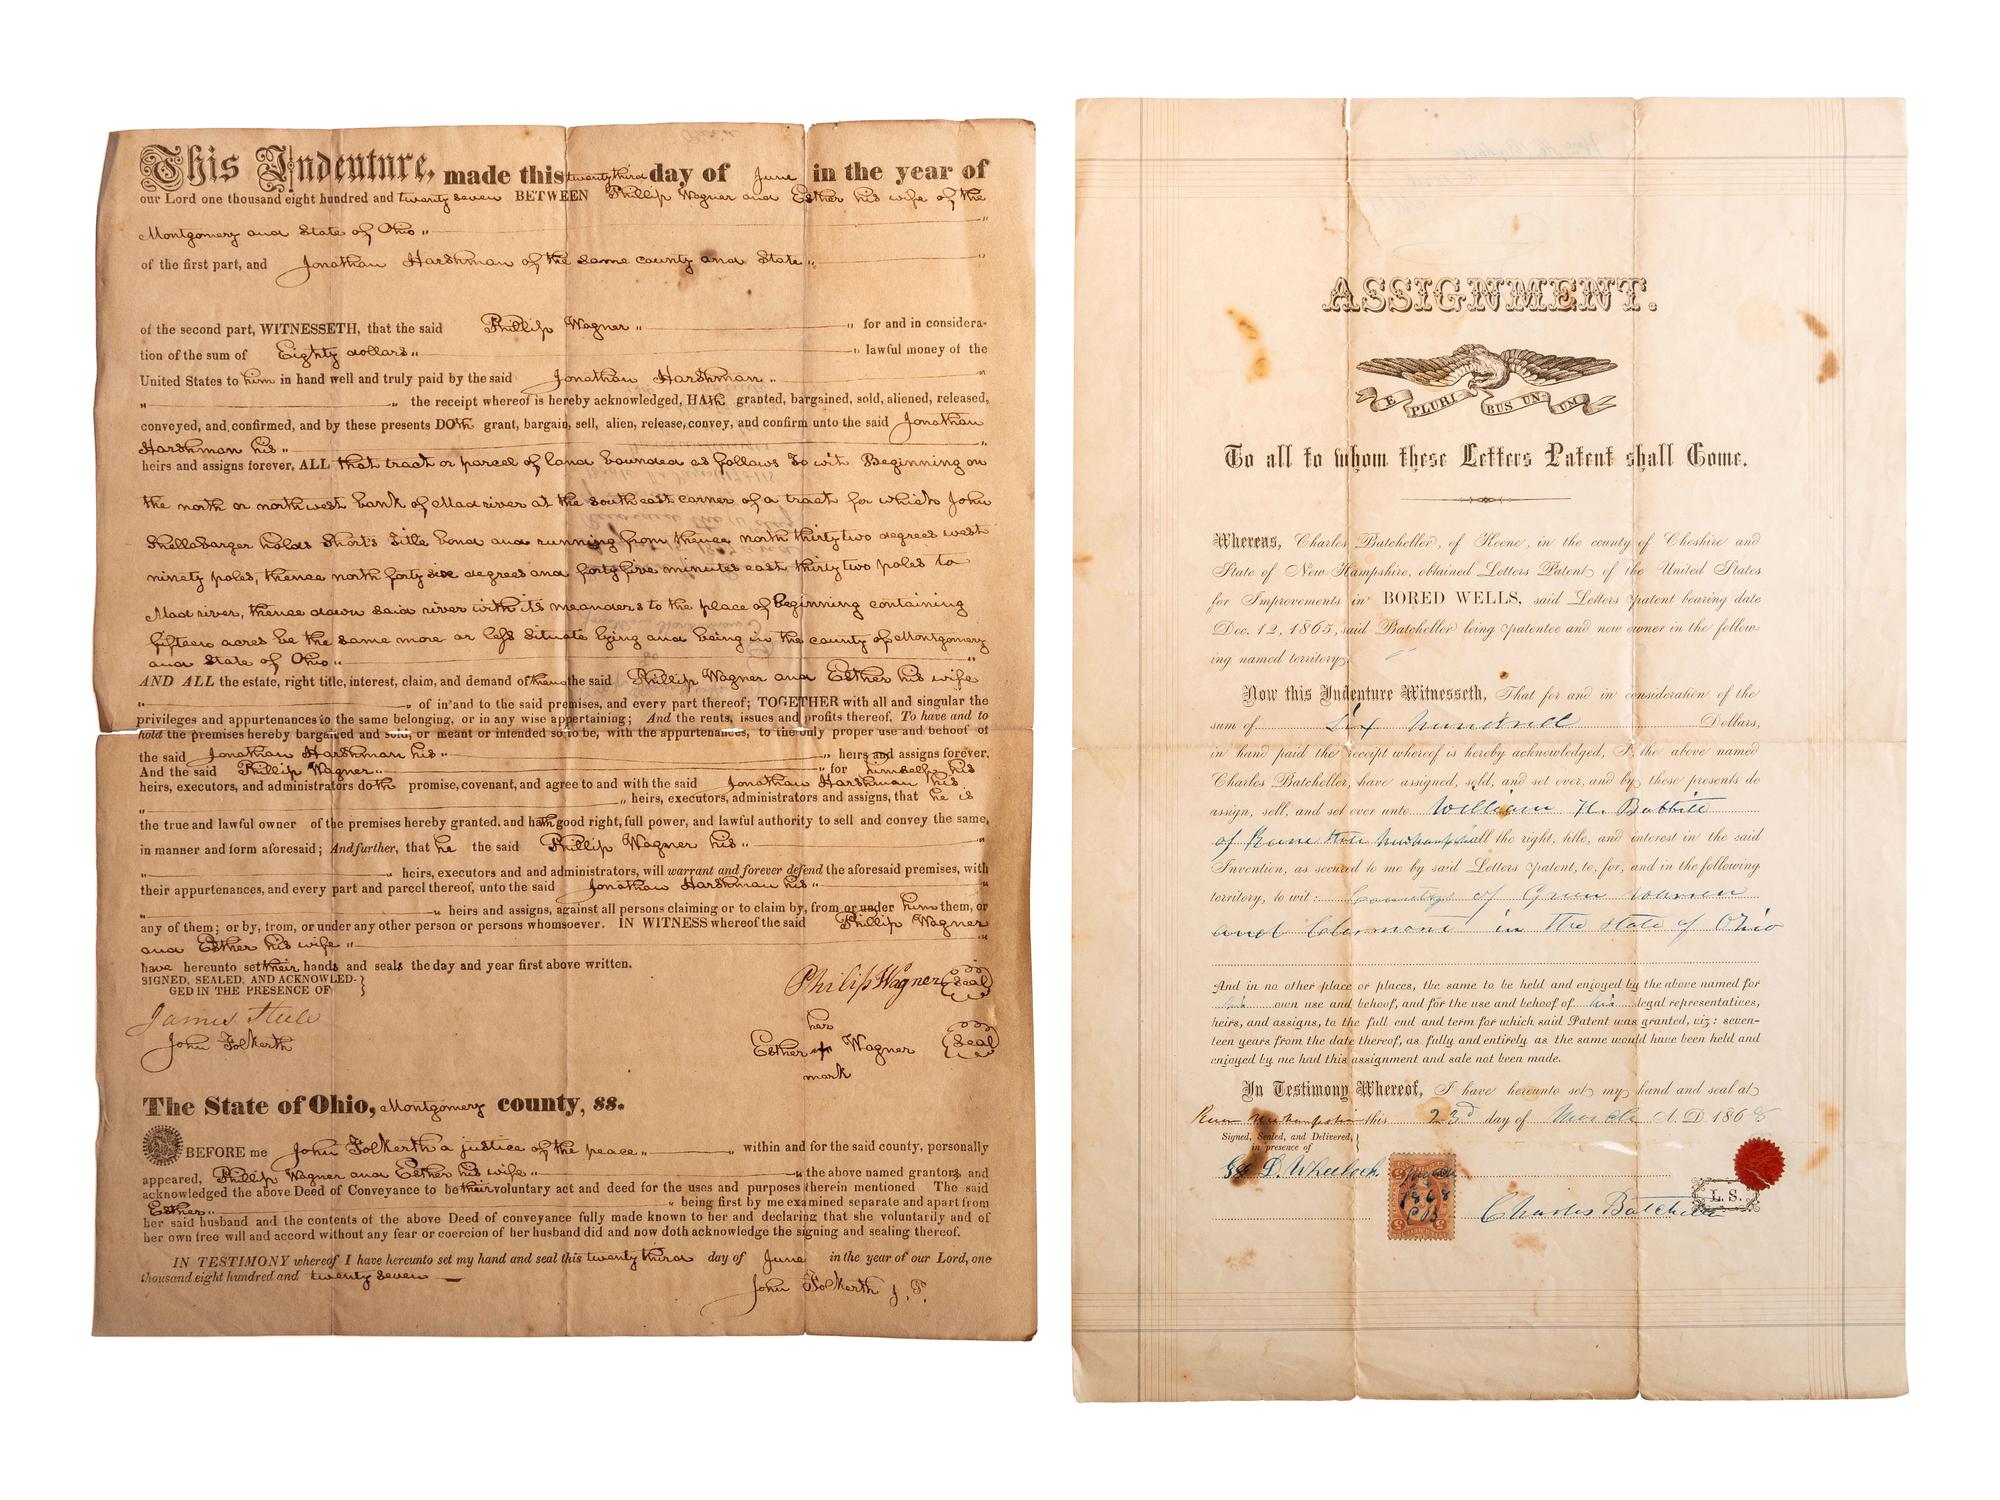 This Indenture, made this twenty third day of June in the year of
our Lord one thousand eight hundred and twenty seven BETWEEN Phillip Wagner and Esther his wife of the
Montgomery and State of Ohio
of the first part, and Jonathan Harshman of the same county and State
of the second part, WITNESSETH, that the said Phillip Wagner for and in considera-
tion of the sum of Eighty dollars lawful money of the
United States to him in hand well and truly paid by the said Jonathan Harshman
the receipt whereof is hereby acknowledged, HAth granted, bargained, sold, aliened, released,
conveyed, and confirmed, and by these presents DOth grant, bargain, sell, alien, release, convey, and confirm unto the said Jonathan
Harshman his
heirs and assigns forever, ALL that tract or parcel of land bounded as follows To wit Beginning on
the north or northwest bank of Mad river at the southeast corner of a tract for which John
Shellabarger holds Short's Title bond and running from thence north thirty two degrees west
ninety poles, thence north forty six degrees and forty five minutes east thirty two poles to
Mad river, thence down said river with its meanders to the place of Beginning containing
fifteen acres be the same more or less situate lying and being in the county of Montgomery
and State of Ohio
AND ALL the estate, right title, interest, claim, and demand of them the said Phillip Wagner and Esther his wife
of in and to the said premises, and every part thereof; TOGETHER with all and singular the
privileges and appurtenances to the same belonging, or in any wise appertaining; And the rents, issues and profits thereof, To have and to
hold the premises hereby bargained and sold, or meant or intended so to be, with the appurtenances, to the only proper use and behoof of
the said Jonathan Harshman his heirs and assigns forever.
And the said Phillip Wagner for himself his
heirs, executors, and administrators doth promise, covenant, and agree to and with the said Jonathan Harshman his
heirs, executors, administrators and assigns, that he is
the true and lawful owner of the premises hereby granted, and hath good right, full power, and lawful authority to sell and convey the same,
in manner and form aforesaid; And further, that he the said Phillip Wagner his
heirs, executors and and administrators, will warrant and forever defend the aforesaid premises, with
their appurtenances, and every part and parcel thereof, unto the said Jonathan Harshman his
heirs and assigns, against all persons claiming or to claim by, from or under him them, or
any of them; or by, from, or under any other person or persons whomsoever. IN WITNESS whereof the said Phillip Wagner
and Esther his wife
have hereunto set their hands and seals the day and year first above written.
SIGNED, SEALED, AND ACKNOWLED-
GED IN THE PRESENCE OF
Philip Wagner Seal
James Steele
John Folkerth
her
Esther Wagner Seal
mark
The State of Ohio, Montgomery county, ss.
BEFORE me John Folkerth a justice of the peace within and for the said county, personally
appeared, Phillip Wagner and Esther his wife the above named grantors and
acknowledged the above Deed of Conveyance to be their voluntary act and deed for the uses and purposes therein mentioned The said
Esther being first by me examined separate and apart from
her said husband and the contents of the above Deed of conveyance fully made known to her and declaring that she voluntarily and of
her own free will and accord without any fear or coercion of her husband did and now doth acknowledge the signing and sealing thereof.
IN TESTIMONY whereof I have hereunto set my hand and seal this twenty third day of June in the year of our Lord, one
thousand eight hundred and twenty seven
John Folkerth J. P.
ASSIGNMENT.
E PLURI BUS UN UM
To all to whom these Letters Patent shall Come.
Whereas, Charles Batcheller, of Keene, in the county of Cheshire and
State of New-Hampshire, obtained Letters Patent of the United States
for Improvements in BORED WELLS, said Letters Patent bearing date
Dec. 12, 1865, said Batcheller being patentee and now owner in the follow-
ing named territory.
Now this Indenture Witnesseth, That for and in consideration of the
sum of Six hundred Dollars,
in hand paid the receipt whereof is hereby acknowledged, I, the above named
Charles Batcheller, have assigned, sold, and set over, and by these presents do
assign, sell, and set over unto William H. Babbitt
of Keene State Newhampshire all the right, title, and interest in the said
Invention, as secured to me by said Letters Patent, to, for, and in the following
territory, to wit: Countys of Green Warren
and Clermont in the State of Ohio
And in no other place or places, the same to be held and enjoyed by the above named for
his own use and behoof, and for the use and behoof of his legal representatives,
heirs, and assigns, to the full end and term for which said Patent was granted, viz: seven-
teen years from the date thereof, as fully and entirely as the same would have been held and
enjoyed by me had this assignment and sale not been made.
In Testimony Whereof, I have hereunto set my hand and seal at
Keene Newhampshire this 23d day of March A. D. 1868
Signed, Sealed, and Delivered,
in presence of
D. Wheelock
1868
C B
Charles Batcheller
L. S.